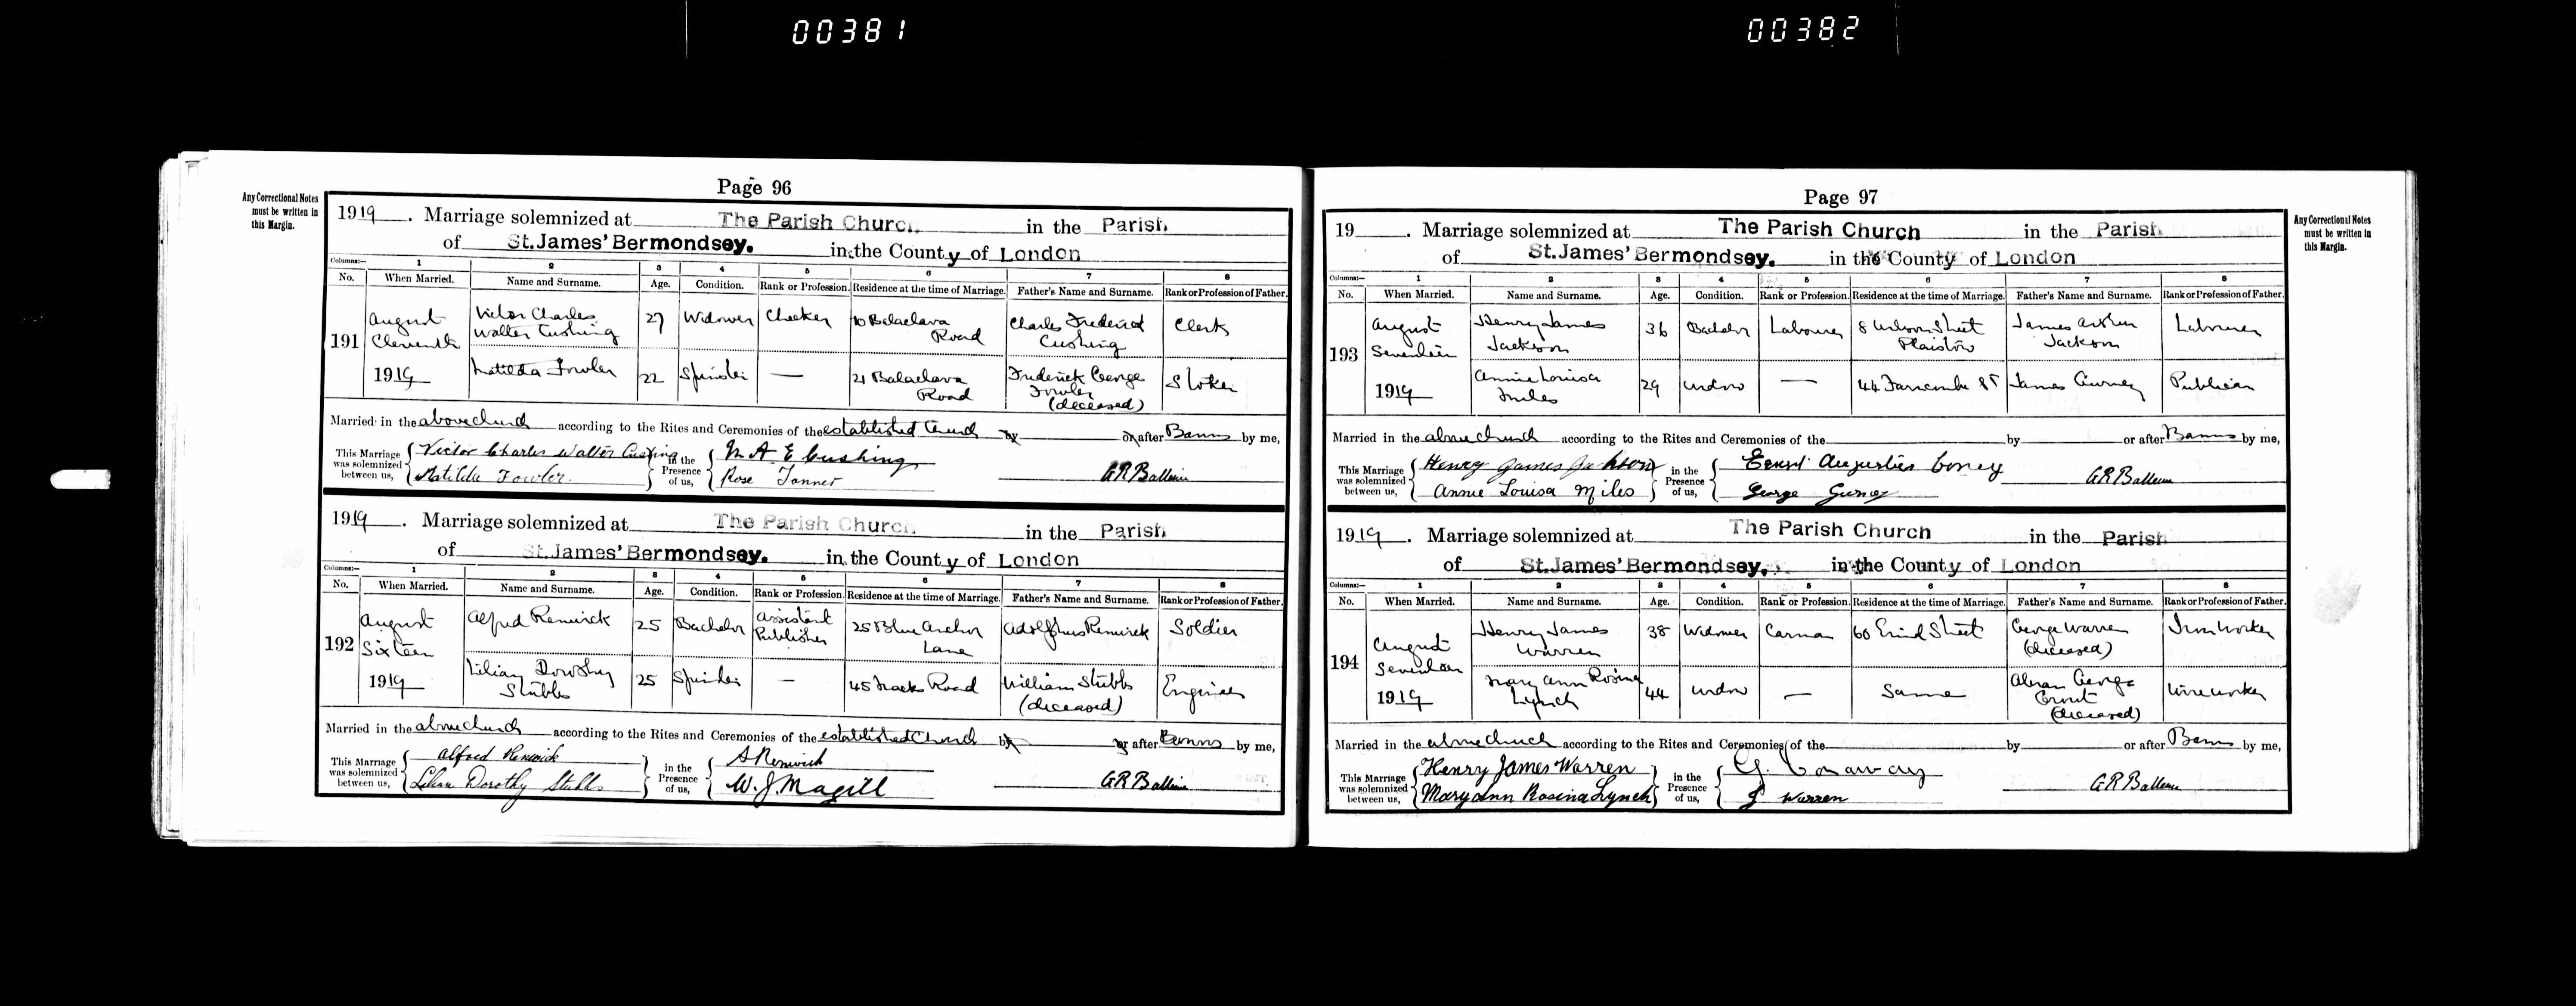 00381
00382
Page 96
Any Correctional Notes
must be written in
this Margin.
1919. Marriage solemnized at The Parish Church in the Parish
of St. James' Bermondsey. in the County of London
Columns:— 1 2 3 4 5 6 7 8
No. When Married. Name and Surname. Age. Condition. Rank or Profession. Residence at the time of Marriage. Father's Name and Surname. Rank or Profession of Father.
191 August Eleventh 1919 Victor Charles Walter Cushing 27 Widower Checker 10 Balaclava Road Charles Frederick Cushing Clerk
Matilda Fowler 22 Spinster — 21 Balaclava Road Frederick George Fowler (deceased) Stoker
Married in the above church according to the Rites and Ceremonies of the established Church by or after Banns by me,
This Marriage was solemnized between us, Victor Charles Walter Cushing in the Presence of us, M A E Cushing
Matilda Fowler Rose Tanner
1919. Marriage solemnized at The Parish Church in the Parish
of St. James' Bermondsey. in the County of London
Columns:— 1 2 3 4 5 6 7 8
No. When Married. Name and Surname. Age. Condition. Rank or Profession. Residence at the time of Marriage. Father's Name and Surname. Rank or Profession of Father.
192 August Sixteen 1919 Alfred Renwick 25 Bachelor Assistant Publisher 25 Blue Anchor Lane Adolphus Renwick Soldier
Lilian Dorothy Stubbs 25 Spinster — 45 Road William Stubbs (deceased) Engineer
Married in the above church according to the Rites and Ceremonies of the established Church by or after Banns by me,
This Marriage was solemnized between us, Alfred Renwick in the Presence of us, A Renwick
Lilian Dorothy Stubbs W. J. Magill
Page 97
Any Correctional Notes
must be written in
this Margin.
19 . Marriage solemnized at The Parish Church in the Parish
of St. James' Bermondsey. in the County of London
Columns:— 1 2 3 4 5 6 7 8
No. When Married. Name and Surname. Age. Condition. Rank or Profession. Residence at the time of Marriage. Father's Name and Surname. Rank or Profession of Father.
193 August Seventeen 1919 Henry James Jackson 36 Bachelor Labourer 8 Street Plaistow James Arthur Jackson Labourer
Annie Louisa Miles 29 Widow — 44 St James Gurney Publican
Married in the above church according to the Rites and Ceremonies of the by or after Banns by me,
This Marriage was solemnized between us, Henry James Jackson in the Presence of us, Ernest Augustus Coney
Annie Louisa Miles George Gurney
1919. Marriage solemnized at The Parish Church in the Parish
of St. James' Bermondsey. in the County of London
Columns:— 1 2 3 4 5 6 7 8
No. When Married. Name and Surname. Age. Condition. Rank or Profession. Residence at the time of Marriage. Father's Name and Surname. Rank or Profession of Father.
194 August Seventeen 1919 Henry James Warren 38 Widower Carman 60 Street George Warren (deceased) Iron Worker
Mary Ann Rosina Lynch 44 Widow — Same George (deceased) Wireworker
Married in the above church according to the Rites and Ceremonies of the by or after Banns by me,
This Marriage was solemnized between us, Henry James Warren in the Presence of us,
Mary Ann Rosina Lynch Warren